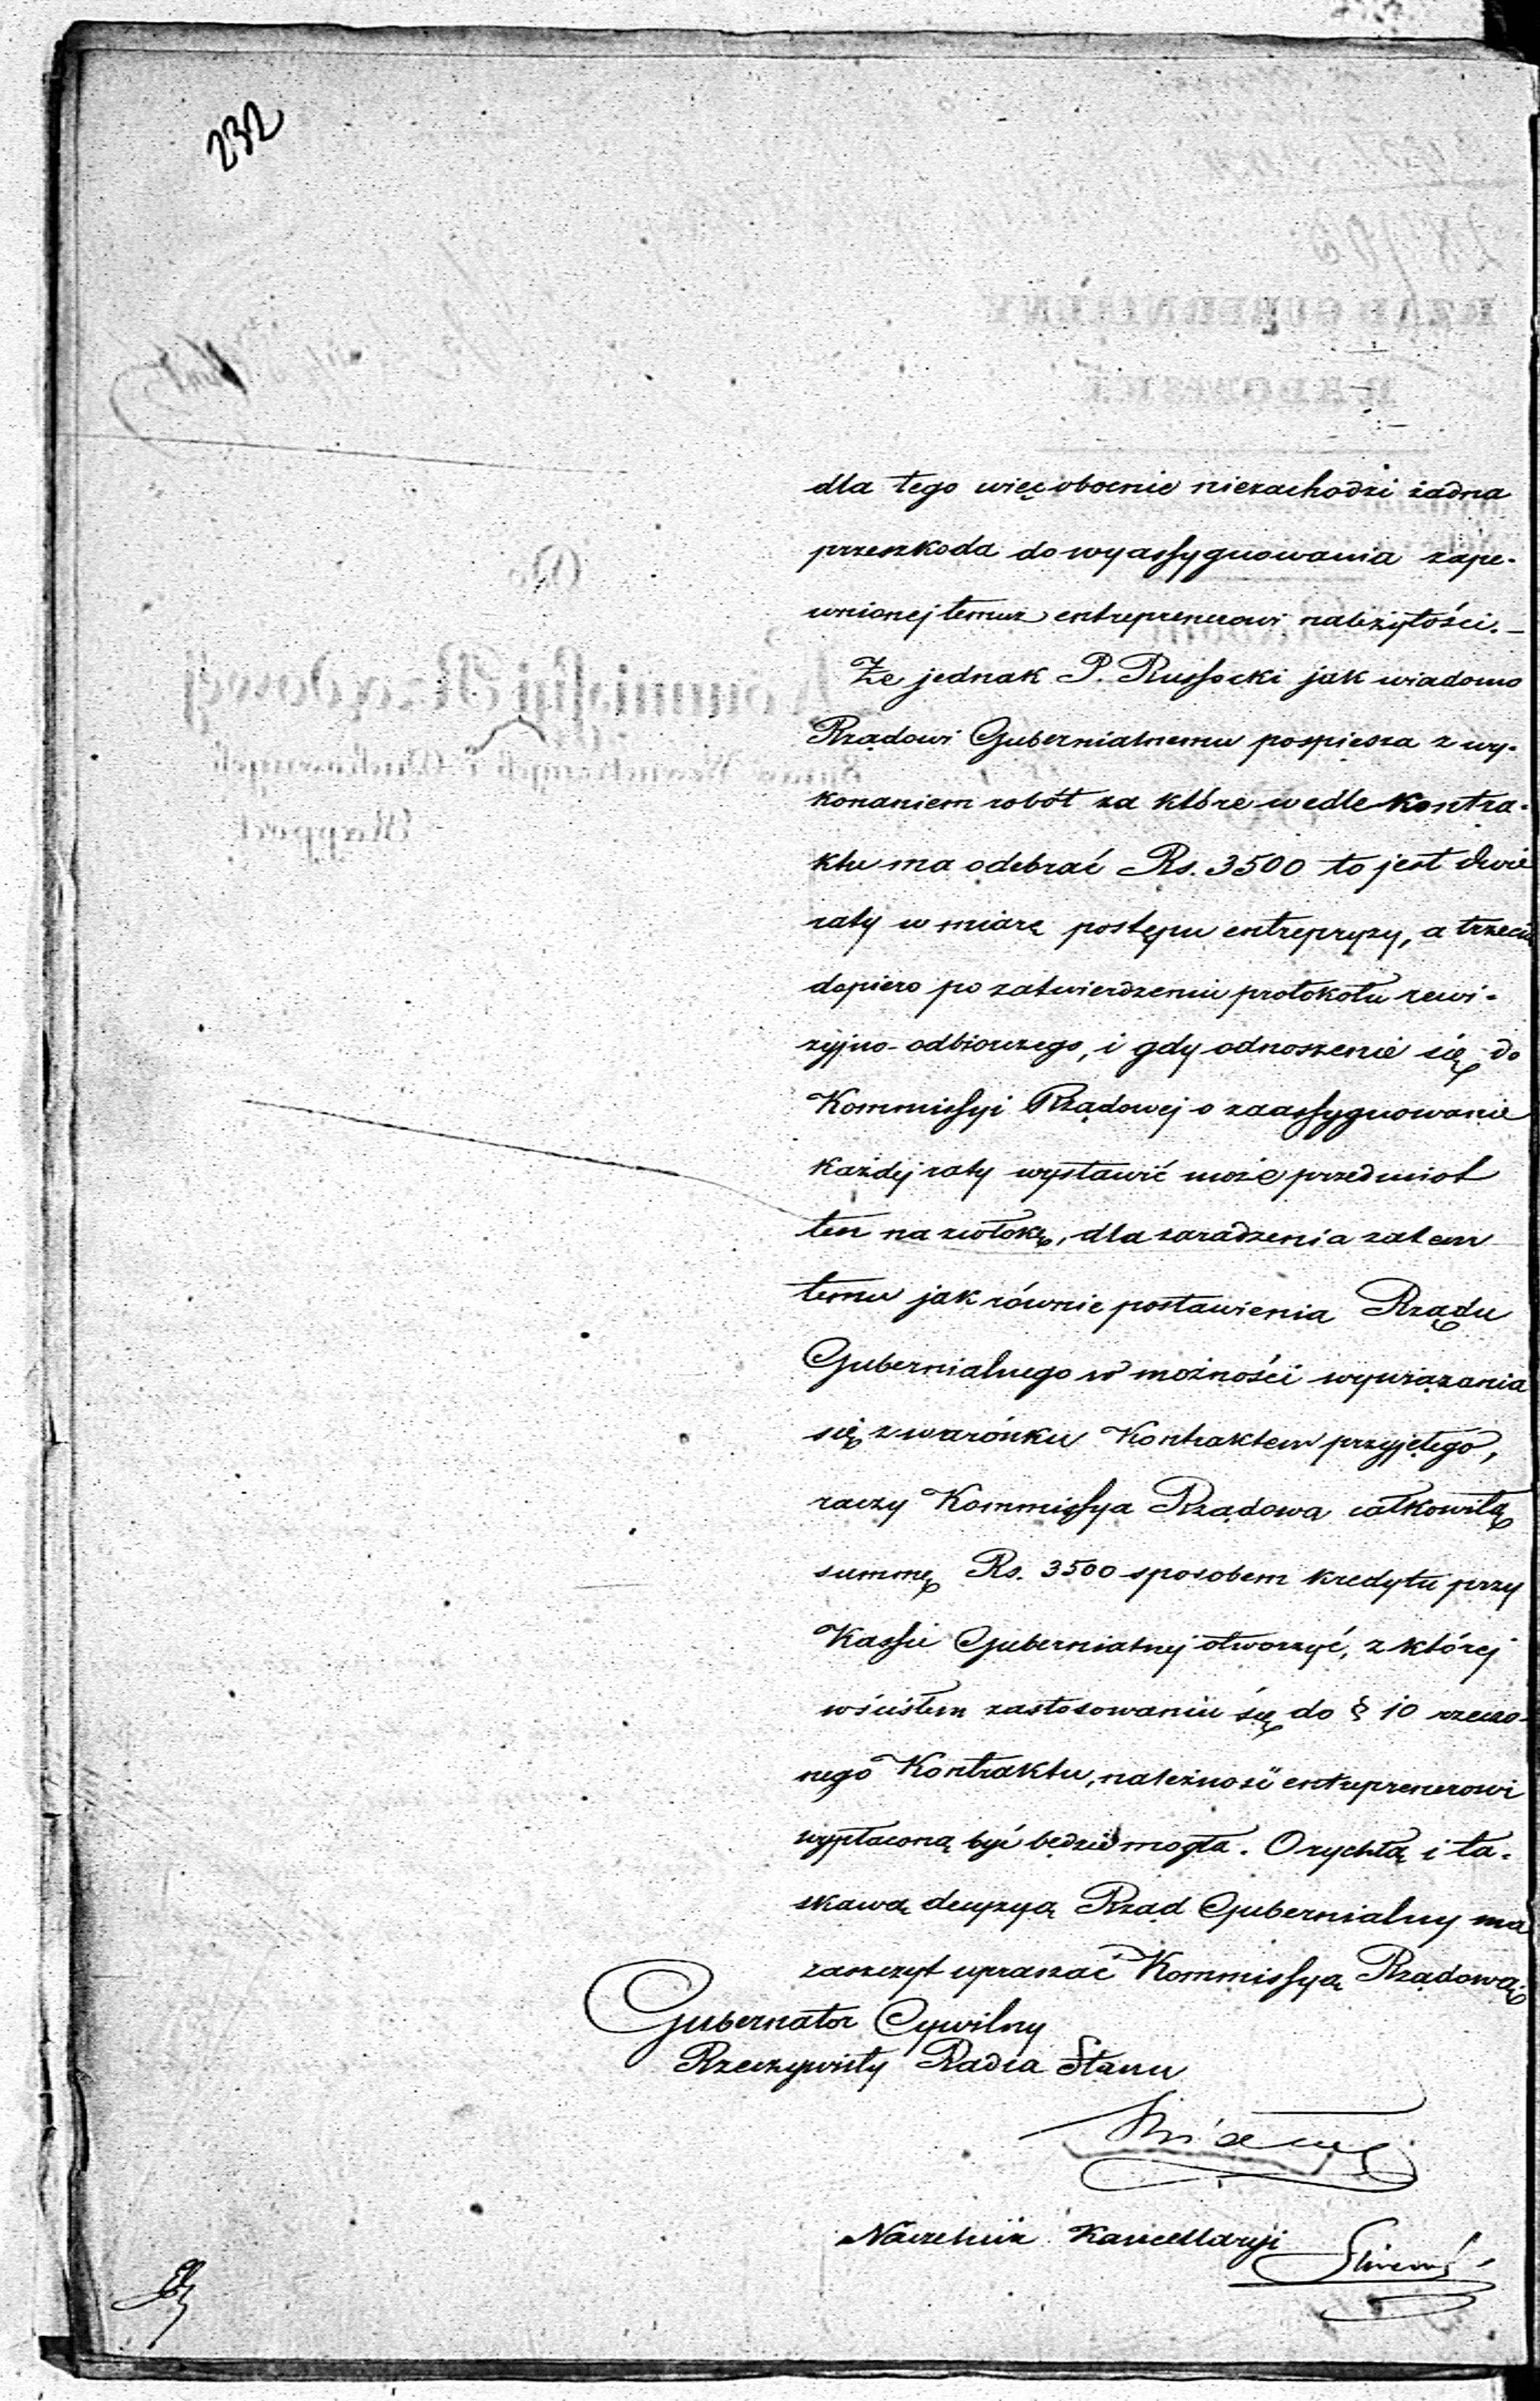 232
dla tego więc obecnie niezachodzi żadna
przeszkoda do wyassygnowania zape-
wnionej temuż entreprenerowi należytości. —
Że jednak P. Russocki jak wiadomo
Rządowi Gubernialnemu pospiesza z wy-
konaniem robót za które wedle kontra-
ktu ma odebrać Rs. 3500 to jest dwie
raty w miarę postępu entrepryzy, a trzecią
dopiero po zatwierdzeniu protokołu rewi-
zyjno-odbiorczego, i gdy odnoszenie się do
Kommissyi Rządowej o zaassygnowanie
każdej raty wystawić może przedmiot
ten na zwłokę, dla zaradzenia zatem
temu jak równie postawienia Rządu
Gubernialnego w możności wywiązania
się z warónku Kontraktem przyjętego,
raczy Kommissya Rządowa całkowitą
summę Rs. 3500 sposobem kredytu przy
Kassie Gubernialnej otworzyć, z której
w ścisłem zastosowaniu się do § 10 rzeczo-
nego Kontraktu, należność entreprenerowi
wypłaconą być będzie mogła. O rychłą i ła-
skawą decyzyą Rząd Gubernialny ma
zaszczyt upraszać Kommissyą Rządową.
Gubernator Cywilny
Rzeczywisty Radca Stanu
Naczelnik Kancellaryi